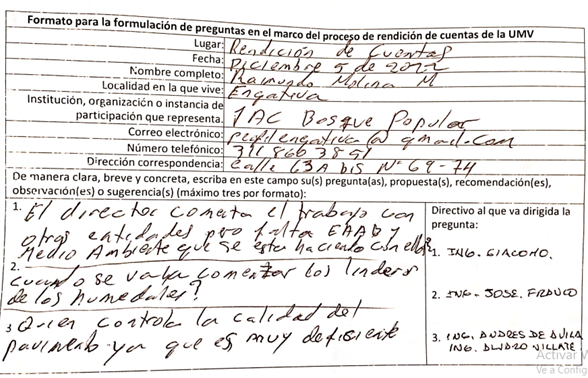 Formato para la formulación de preguntas en el marco del proceso de rendición de cuentas de la UMV
Lugar: Rendición de Cuentas
Fecha: Diciembre 5 de 2022
Nombre completo: Raimundo Molina M
Localidad en la que vive: Engativa
Institución, organización o instancia de participación que representa. JAC Bosque Popular
Correo electrónico: @ gmail.com
Número telefónico: 311 860 3891
Dirección correspondencia: Calle 63A bis Nº 69-74
De manera clara, breve y concreta, escriba en este campo su(s) pregunta(as), propuesta(s), recomendación(es),
observación(es) o sugerencia(s) (máximo tres por formato):
1. El director comenta el trabajo con
otras entidades pero falta EAAB y
Medio Ambiente que se esta haciendo con ellos?
2. Cuando se va a comenzar los linderos
de los humedales?
3 Quien controla la calidad del
pavimento ya que es muy deficiente
Directivo al que va dirigida la
pregunta:
1. ING. GIACOMO.
2. ING. JOSE. FRANCO
3. ING. ANDRES DE AVILA
ING. ALVARO VILLATE
Activar
Ve a Config